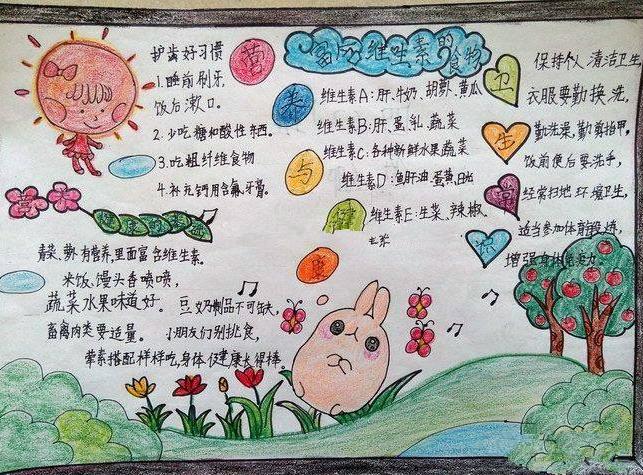 护齿好习惯
1.睡前刷牙
饭后漱口。
2.少吃糖和酸性东西。
3.吃粗纤维食物
4.补充钙用含氟牙膏。
营
养
与
健
康
维生素的食物
维生素A:肝、牛奶、胡萝、黄瓜
维生素B:肝、蛋、乳、蔬菜
维生素C:各种新鲜水果蔬菜
维生素D:鱼肝油、蛋黄、日出
维生素E:生菜、辣椒、
卫
生
常
识
保持个人清洁卫生,
衣服要勤换洗,
勤洗澡,勤剪指甲,
饭前便后要洗手,
经常扫地环境卫生,
适当参加体育锻炼,
增强身体免疫力
营
青菜、有营养,里面富含维生素。
米饭、馒头香喷喷,
蔬菜水果味道好。豆奶制品不可缺,
畜禽肉类要适量。小朋友们别挑食,
荤素搭配样样吃,身体健康长得棒。